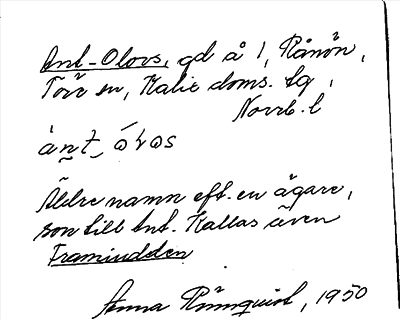 Ant-Olovs, gd å 1, Rånön,
Töre sn, Kalix doms. tg,
Norrb. l
ànt-ólvas
Äldre namn eft. en ägare,
som titt Ant. Kallas även
Framiudden
Anna Rönnquist, 1950